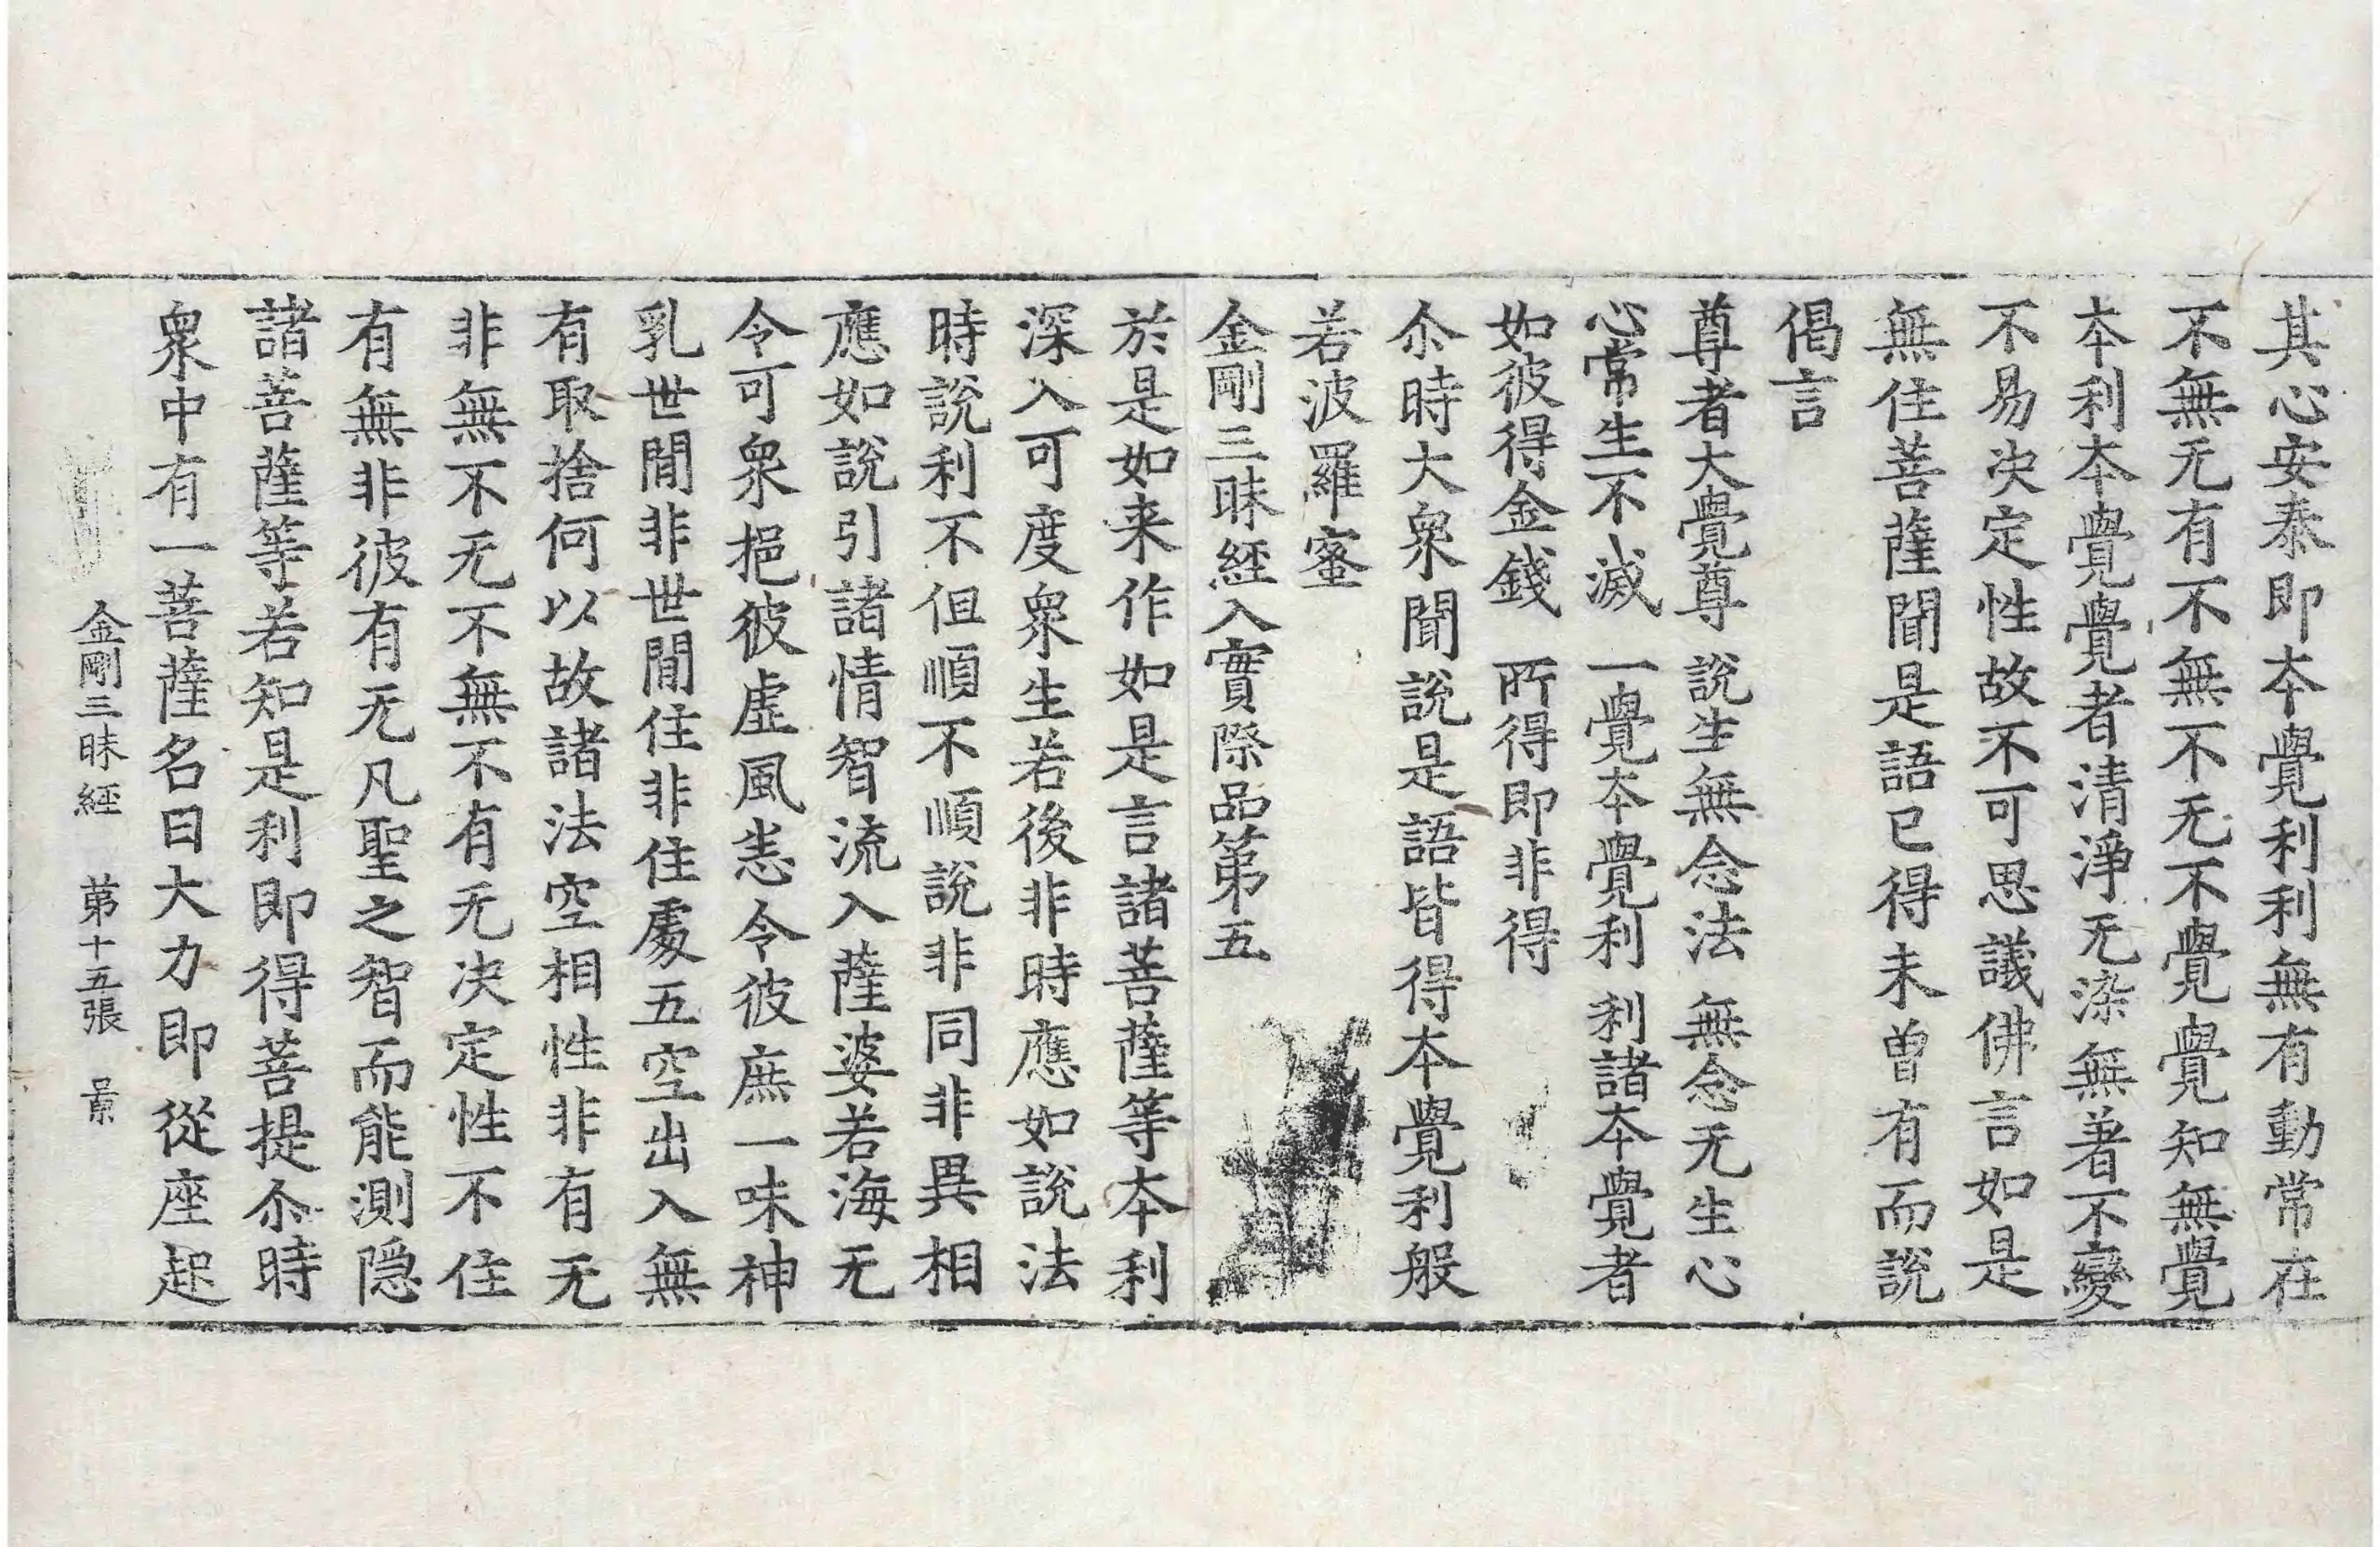 其心安泰即本覺利利無有動常在
不無无有不無不无不覺覺知無覺
本利本覺覺者清淨无染無著不變
不易决定性故不可思議佛言如是
無住菩薩聞是語已得未曾有而說
偈言
尊者大覺尊 說生無念法 無念无生心
心常生不滅 一覺本覺利 利諸本覺者
如彼得金錢 所得即非得
尒時大衆聞說是語皆得本覺利般
若波羅蜜
金剛三昧經入實際品第五
於是如来作如是言諸菩薩等本利
深入可度衆生若後非時應如說法
時說利不但順不順說非同非異相
應如說引諸情智流入薩婆若海无
令可衆挹彼虛風恚令彼庶一味神
乳世間非世間住非住處五空出入無
有取捨何以故諸法空相性非有无
非無不无不無不有无决定性不住
有無非彼有无凡聖之智而能測隠
諸菩薩等若知是利即得菩提尒時
衆中有一菩薩名曰大力即從座起
金剛三昧經 第十五張 景